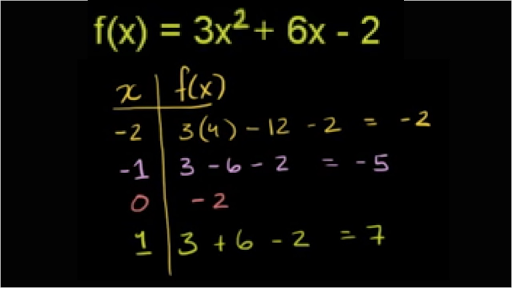 f(x) = 3x² + 6x - 2
x f(x)
-2 3(4) - 12 - 2 = -2
-1 3 - 6 - 2 = -5
0 -2
1 3 + 6 - 2 = 7